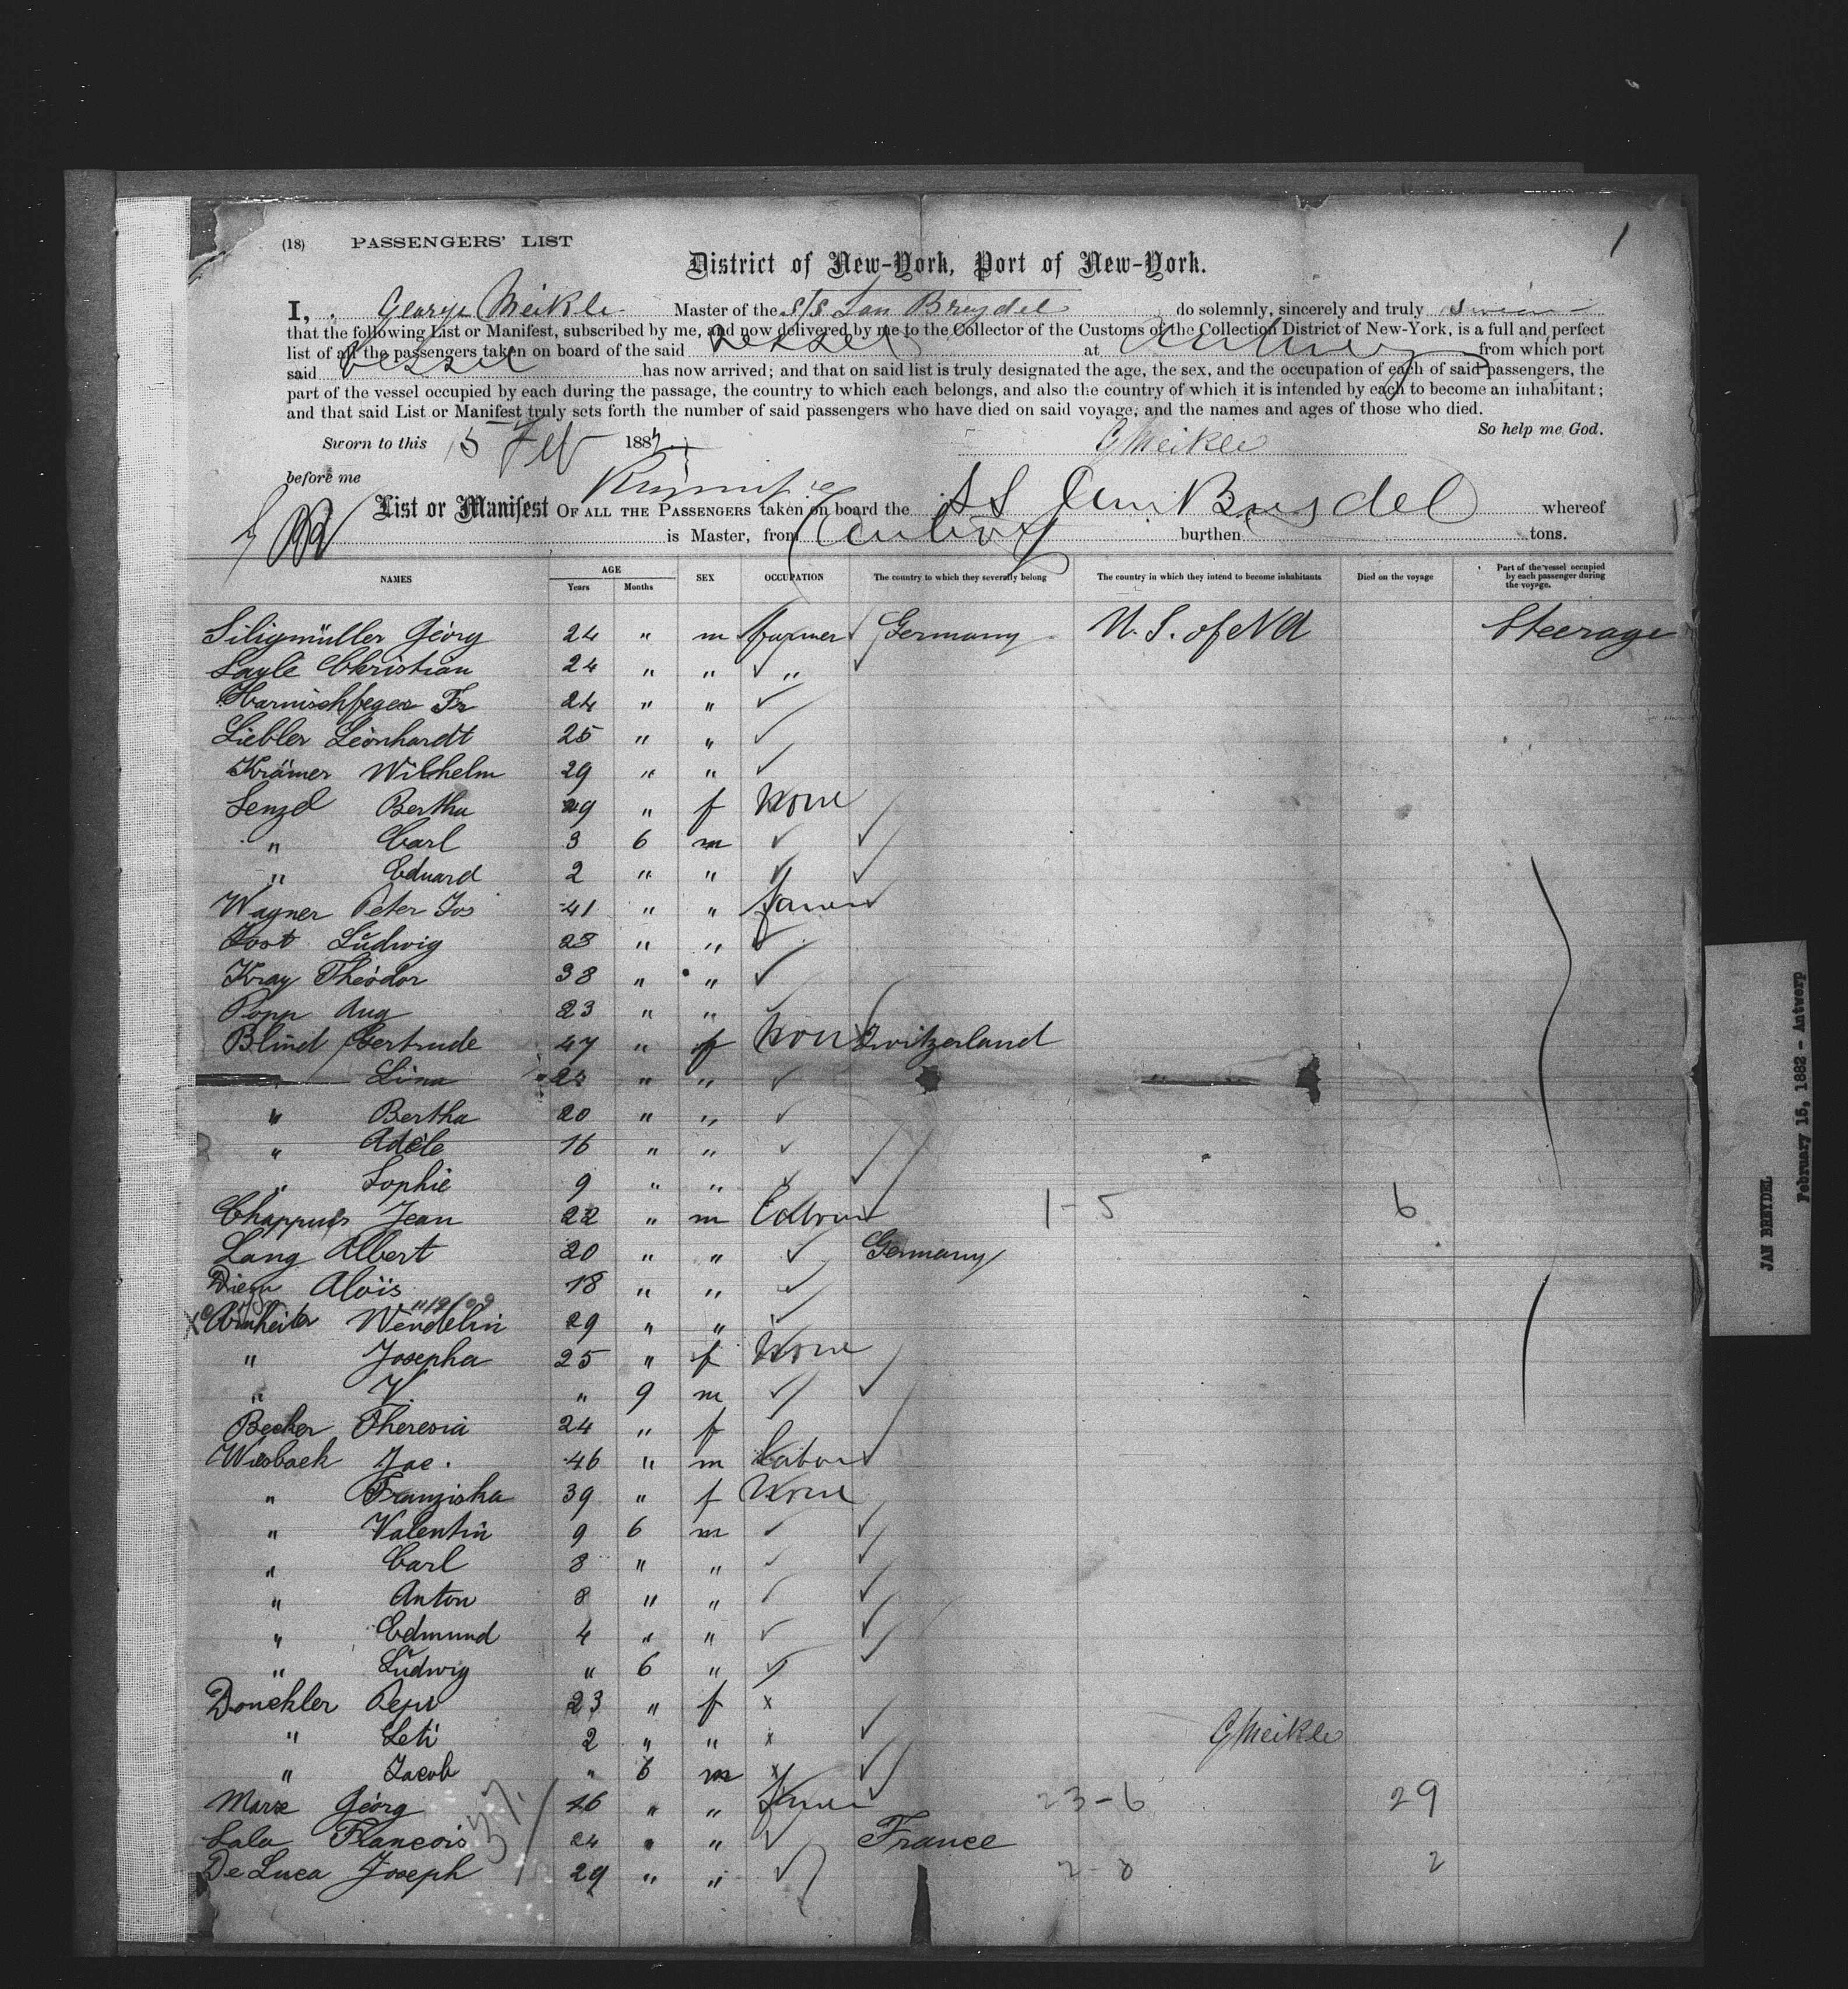 (18) PASSENGERS' LIST 1
District of New-York, Port of New-York.
I, George Meikle Master of the S/S Jan Breydel do solemnly, sincerely and truly swear
that the following List or Manifest, subscribed by me, and now delivered by me to the Collector of the Customs of the Collection District of New-York, is a full and perfect
list of all the passengers taken on board of the said Vessel at Antwerp from which port
said Vessel has now arrived; and that on said list is truly designated the age, the sex, and the occupation of each of said passengers, the
part of the vessel occupied by each during the passage, the country to which each belongs, and also the country of which it is intended by each to become an inhabitant;
and that said List or Manifest truly sets forth the number of said passengers who have died on said voyage, and the names and ages of those who died.
So help me God.
Sworn to this 15 Feb 188 G Meikle
before me
List or Manifest OF ALL THE PASSENGERS taken on board the SS Jan Breydel whereof
is Master, from Antwerp burthen tons.
NAMES AGE Years Months SEX OCCUPATION The country to which they severally belong The country in which they intend to become inhabitants Died on the voyage Part of the vessel occupied by each passenger during the voyage.
Siligmüller Georg 24 " m Farmer Germany U. S. of NA Steerage
Layle Christian 24 " " ✓ "
Harnischfeger Fr 24 " " ✓
Liebler Leonhardt 25 " " ✓
Krämer Wilhelm 29 " " ✓
Senzel Bertha 29 " f None
" Carl 3 6 m ✓ ✓
" Eduard 2 " " ✓ ✓
Wagner Peter Jos 41 " " farmer
Jost Ludwig 28 " " ✓
Kray Theodor 38 " " ✓
Popp Aug 23 " " ✓
Blind Gertrude 47 " f None Switzerland
Lina " " ✓
" Bertha 20 " " ✓
" Adèle 16 " " ✓
" Sophie 9 " " ✓ ✓
Chappuis Jean 22 " m Labour 1-5 6
Lang Albert 20 " " ✓ Germany
Alois 18 " " ✓
Wendelin 29 " " ✓
" Josepha 25 " f None
" V. " 9 m ✓ ✓
Becker Theresia 24 " f
Wiesback Jac. 46 " m Labour
" Franziska 39 " f None
" Valentin 9 6 m ✓ ✓
" Carl 8 " " ✓ ✓
" Anton 8 " " ✓ ✓
" Edmund 4 " " ✓ ✓
" Ludwig " 6 " ✓ ✓
Donekler 23 " f x
" Leti 2 " " x ✓ G Meikle
" Jacob " 6 m x ✓
Marx Georg 46 " " farmer 23-6 29
Lala Francois 24 " " ✓ France
De Luca Joseph 29 " " ✓ 2-0 2
JAN BREYDEL
February 15, 1882 - Antwerp